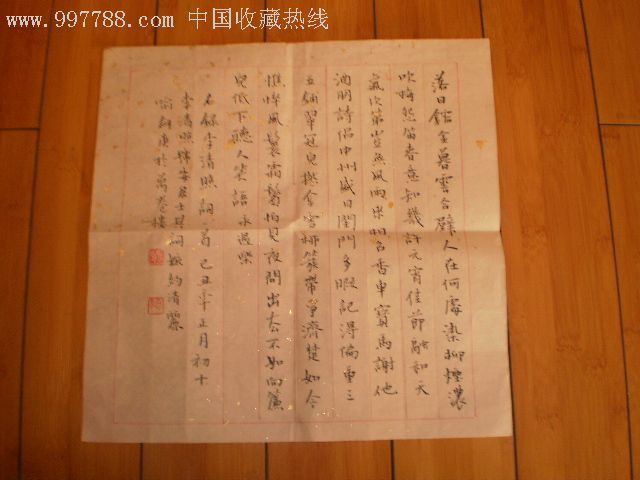 www.997788.com 中国收藏热线
落日鎔金暮雲合璧人在何處染柳煙濃
吹梅怨笛春意知幾許元宵佳節融和天
氣次第豈無風雨來相召香車寶馬謝他
酒朋詩侶中州盛日閨門多暇記得偏重三
五鋪翠冠兒撚金雪柳簇帶爭濟楚如今
憔悴風鬟霜鬢怕見夜間出去不如向簾
兒低下聽人笑語 永遇樂
右錄李清照詞一首 己丑年正月初十
李清照號易安居士其詞婉約清麗
於萬卷樓